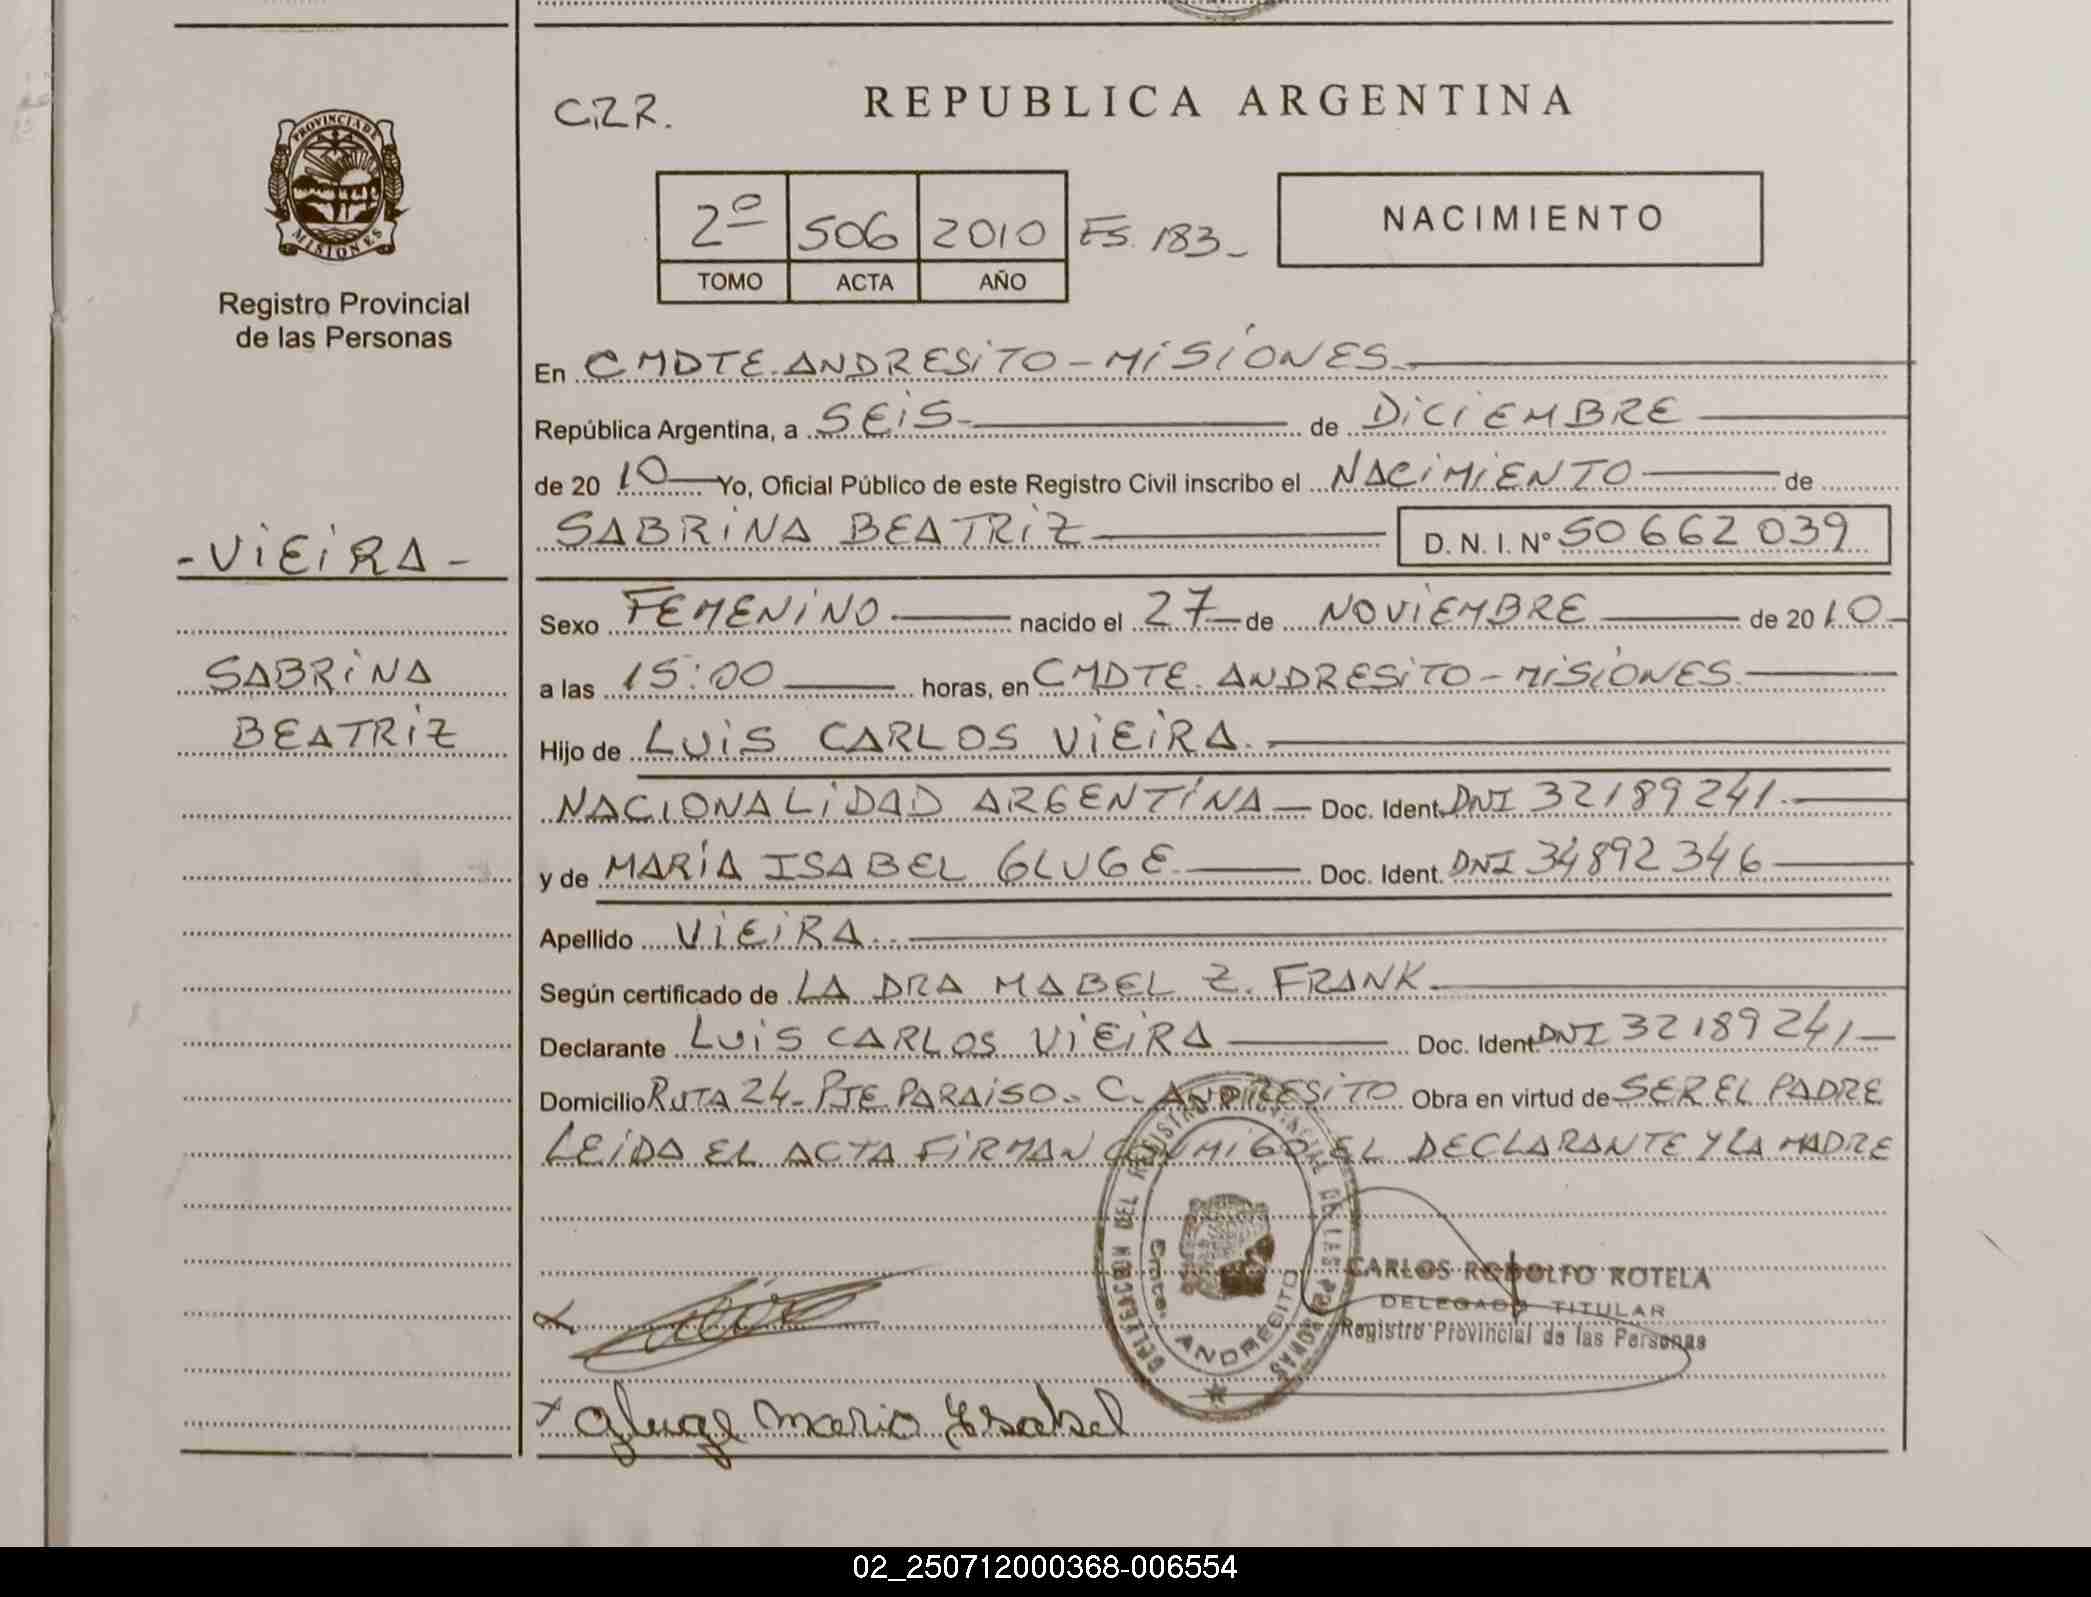 PROVINCIA DE
MISIONES
Registro Provincial
de las Personas
-VIEIRA-
SABRINA
BEATRIZ
C.Z.R.
REPUBLICA ARGENTINA
2º 506 2010 FS. 183_
TOMO ACTA AÑO
NACIMIENTO
En CMDTE. ANDRESITO - MISIONES
República Argentina, a SEIS de DICIEMBRE
de 20 10 Yo, Oficial Público de este Registro Civil inscribo el NACIMIENTO de
SABRINA BEATRIZ D. N. I. Nº 50662039
Sexo FEMENINO nacido el 27 de NOVIEMBRE de 2010
a las 15:00 horas, en CMDTE. ANDRESITO - MISIONES
Hijo de LUIS CARLOS VIEIRA.
NACIONALIDAD ARGENTINA Doc. Ident. DNI 32189241.
y de MARÍA ISABEL GLUGE Doc. Ident. DNI 34892346
Apellido VIEIRA.
Según certificado de LA DRA MABEL Z. FRANK.
Declarante LUIS CARLOS VIEIRA Doc. Ident. DNI 32189241
Domicilio RUTA 24 - PJE PARAISO. - C. ANDRESITO Obra en virtud de SER EL PADRE
LEIDA EL ACTA FIRMAN CONMIGO EL DECLARANTE Y LA MADRE
DELEGACION DEL REGISTRO PROVINCIAL DE LAS PERSONAS
Cmte. ANDRESITO
CARLOS RODOLFO ROTELA
DELEGADO TITULAR
Registro Provincial de las Personas
x
x Gluge Maria Ysabel
02_250712000368-006554